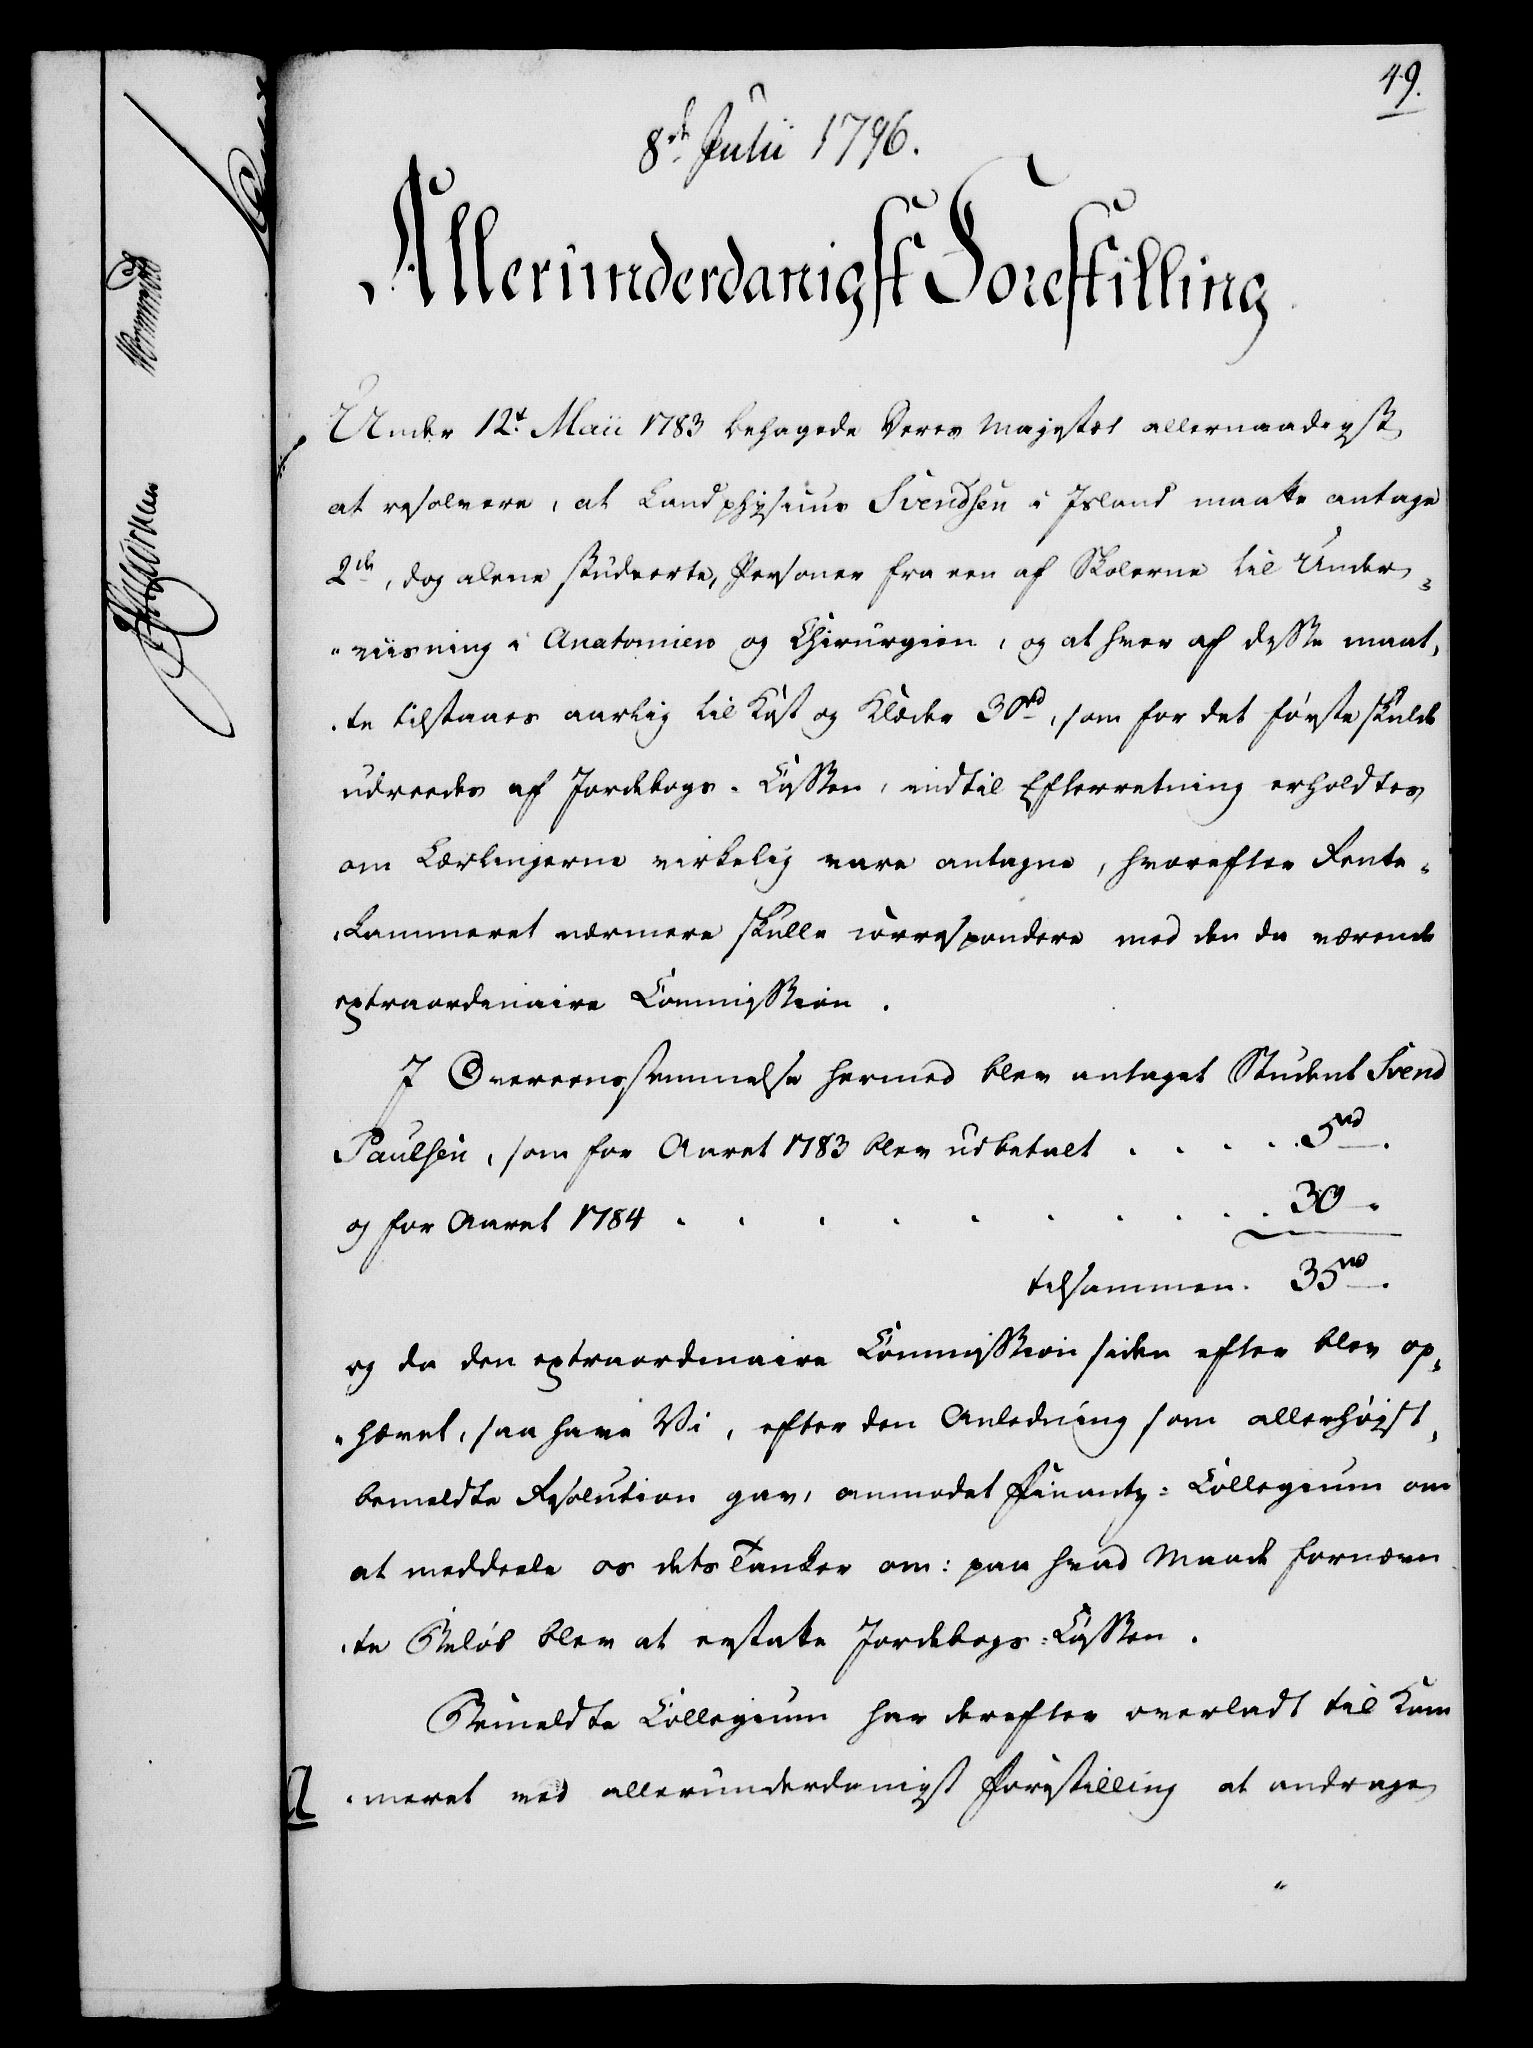 49.
8de Julii 1796.
Allerunderdanigst Forestilling
Under 12t Maii 1783 behagede Deres Majestet allernaadigst
at resolvere, at Landphysicus Svendsen i Island maatte antage
2de, dog alene studeerte, Personer fra een af Skolerne til Under-
"viisning i Anatomien og Chirurgien, og at hver af disse maat,
"te tilstaaes aarlig til Kost og Klæder 30rd, som for det første skulde
udreedes af Jordebogs-Cassen, indtil Efterretning erholdtes
om Lærlingerne virkelig vare antagne, hvorefter Rente-
"kammeret nærmere skulle correspondere med den da værende
extraordinaire Commission.
I Overeensstemmelse hermed blev antaget Student Svend
Paulsen, som for Aaret 1783 blev udbetalt . . . . . 5rd.
og for Aaret 1784 . . . . . . . . . . 30 -
tilsammen. 35rd.
og da den extraordinaire Commission siden efter blev op,
"hævet, saa have Vi, efter den Anledning som allerhøjst,
bemeldte Resolution gav, anmodet Finantz-Collegium om
at meddeele os dets Tanker om: paa hvad Maade fornævn
"te Beløb blev at erstatte Jordebogs-Cassen.
Bemeldte Collegium har derefter overladt til Kam
A "meret ved allerunderdanigst Forestilling at andrage